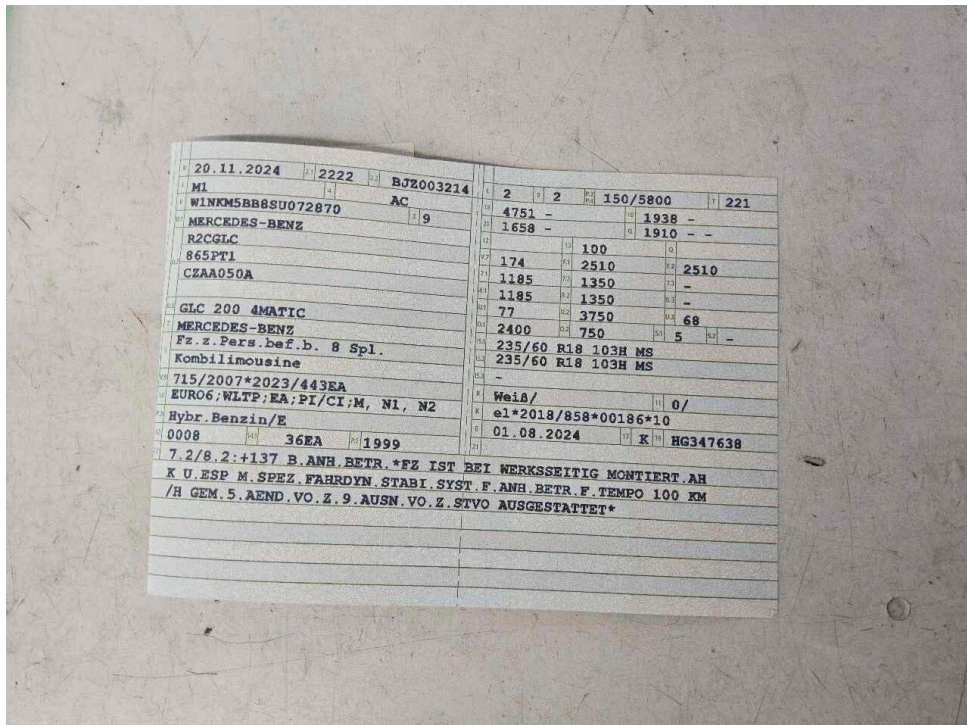 20.11.2024 2222 BJZ003214
M1 AC
W1NKM5BB8SU072870 9
MERCEDES-BENZ
R2CGLC
865PT1
CZAA050A
GLC 200 4MATIC
MERCEDES-BENZ
Fz.z.Pers.bef.b. 8 Spl.
Kombilimousine
715/2007*2023/443EA
EURO6;WLTP;EA;PI/CI;M, N1, N2
Hybr.Benzin/E
0008 36EA 1999
2 2 150/5800 221
4751 - 1938 -
1658 - 1910 - -
100
174 2510 2510
1185 1350 -
1185 1350 -
77 3750 68
2400 750 5 -
235/60 R18 103H MS
235/60 R18 103H MS
-
Weiß/ 0/
e1*2018/858*00186*10
01.08.2024 K HG347638
7.2/8.2:+137 B.ANH.BETR.*FZ IST BEI WERKSSEITIG MONTIERT.AH
K U.ESP M.SPEZ.FAHRDYN.STABI.SYST.F.ANH.BETR.F.TEMPO 100 KM
/H GEM.5.AEND.VO.Z.9.AUSN.VO.Z.STVO AUSGESTATTET*